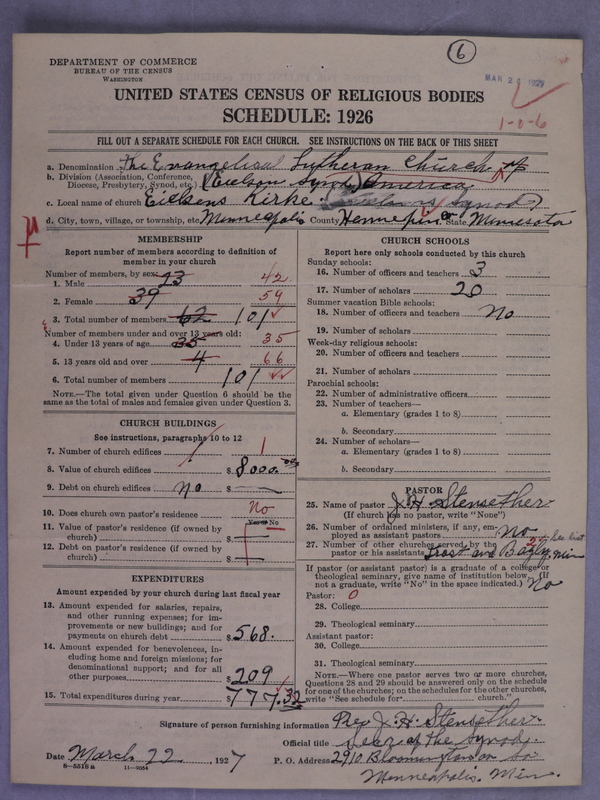 6
MAR 26 1927
1-0-6
DEPARTMENT OF COMMERCE
BUREAU OF THE CENSUS
WASHINGTON
UNITED STATES CENSUS OF RELIGIOUS BODIES
SCHEDULE: 1926
FILL OUT A SEPARATE SCHEDULE FOR EACH CHURCH. SEE INSTRUCTIONS ON THE BACK OF THIS SHEET
a. Denomination The Evangelical Lutheran Church of
b. Division (Association, Conference, Diocese, Presbytery, Synod, etc.) (Eielson Synod) America
c. Local name of church Eielsens Kirke. Synod)
d. City, town, village, or township, etc. Minneapolis County Hennepin State Minnesota
MEMBERSHIP
Report number of members according to definition of
member in your church
Number of members, by sex:
1. Male 23 42
2. Female 39 59
3. Total number of members 62 101
Number of members under and over 13 years old:
4. Under 13 years of age 35 35
5. 13 years old and over 4 66
6. Total number of members 101
NOTE.—The total given under Question 6 should be the
same as the total of males and females given under Question 3.
CHURCH BUILDINGS
See instructions, paragraphs 10 to 12
7. Number of church edifices 1 1
8. Value of church edifices $ 8000.00
9. Debt on church edifices No $
10. Does church own pastor's residence No
Yes or No
11. Value of pastor's residence (if owned by
church) $
12. Debt on pastor's residence (if owned by
church) $
EXPENDITURES
Amount expended by your church during last fiscal year
13. Amount expended for salaries, repairs,
and other running expenses; for im-
provements or new buildings; and for
payments on church debt $ 568.
14. Amount expended for benevolences, in-
cluding home and foreign missions; for
denominational support; and for all
other purposes $ 209
15. Total expenditures during year $ 777.32
CHURCH SCHOOLS
Report here only schools conducted by this church
Sunday schools:
16. Number of officers and teachers 3
17. Number of scholars 20
Summer vacation Bible schools:
18. Number of officers and teachers No
19. Number of scholars
Week-day religious schools:
20. Number of officers and teachers
21. Number of scholars
Parochial schools:
22. Number of administrative officers
23. Number of teachers—
a. Elementary (grades 1 to 8)
b. Secondary
24. Number of scholars—
a. Elementary (grades 1 to 8)
b. Secondary
PASTOR
25. Name of pastor J. H. Stensether
(If church has no pastor, write "None")
26. Number of ordained ministers, if any, em-
ployed as assistant pastors No
27. Number of other churches served by the
pastor or his assistants 2 Frost and Bagly, Min
If pastor (or assistant pastor) is a graduate of a college or
theological seminary, give name of institution below. (If
not a graduate, write "No" in the space indicated.) No
Pastor: 0
28. College
29. Theological seminary
Assistant pastor:
30. College
31. Theological seminary
NOTE.—Where one pastor serves two or more churches,
Questions 28 and 29 should be answered only on the schedule
for one of the churches; on the schedules for the other churches,
write "See schedule for church."
Signature of person furnishing information Rev J. H. Stensether
Official title Secr of the Synod.
Date March 22 1927 P. O. Address 2910 Bloomington av So
8—5518 a 11—9054 Minneapolis. Min.